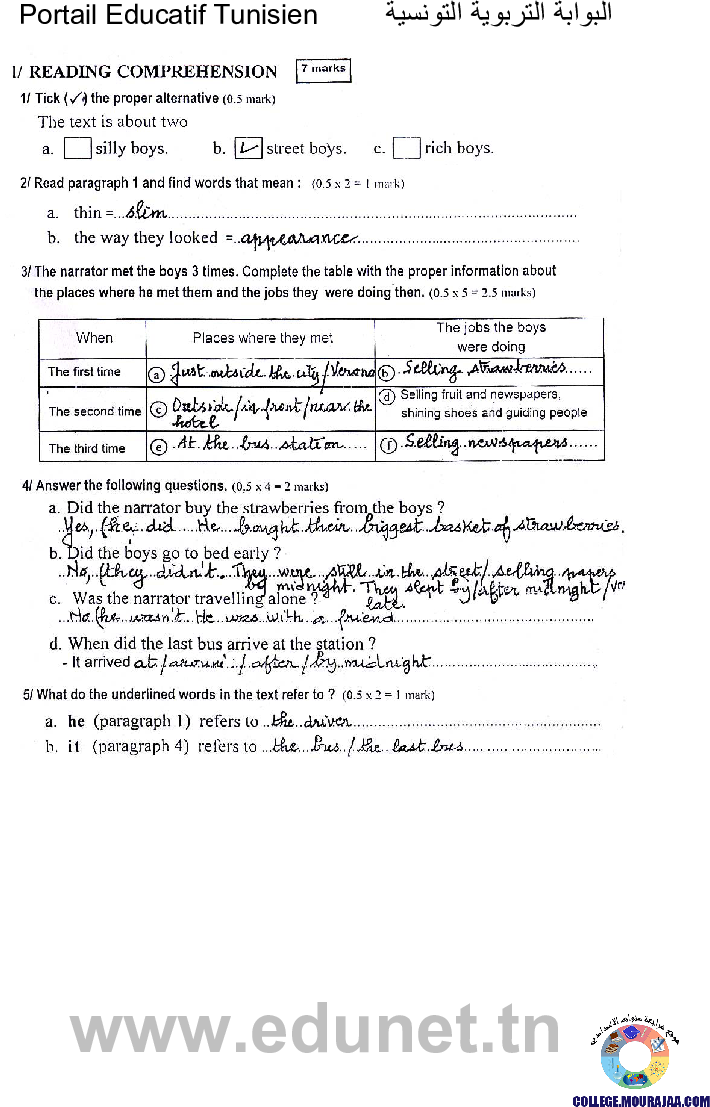 Portail Educatif Tunisien البوابة التربوية التونسية
I/ READING COMPREHENSION 7 marks
1/ Tick (✓) the proper alternative (0.5 mark)
The text is about two
a. silly boys. b. ✓ street boys. c. rich boys.
2/ Read paragraph 1 and find words that mean : (0.5 x 2 = 1 mark)
a. thin =...slim...
b. the way they looked =...appearance...
3/ The narrator met the boys 3 times. Complete the table with the proper information about
the places where he met them and the jobs they were doing then. (0.5 x 5 = 2.5 marks)
When Places where they met The jobs the boys were doing
The first time (a) Just outside the city/Verona (b) Selling strawberries......
The second time (c) Outside/in front/near the hotel (d) Selling fruit and newspapers, shining shoes and guiding people
The third time (e) At the bus station..... (f) Selling newspapers......
4/ Answer the following questions. (0.5 x 4 = 2 marks)
a. Did the narrator buy the strawberries from the boys ?
Yes, (he did. He bought their biggest basket of strawberries.
b. Did the boys go to bed early ?
No, (they didn't. They were still in the street/selling papers
by midnight. They slept by/after midnight/
late.
c. Was the narrator travelling alone ?
No (he wasn't. He was with a friend.....
d. When did the last bus arrive at the station ?
- It arrived at/around/after/by midnight.....
5/ What do the underlined words in the text refer to ? (0.5 x 2 = 1 mark)
a. he (paragraph 1) refers to ..the driver.....
b. it (paragraph 4) refers to ...the bus/the last bus.....
www.edunet.tn
COLLEGE.MOURAJAA.COM